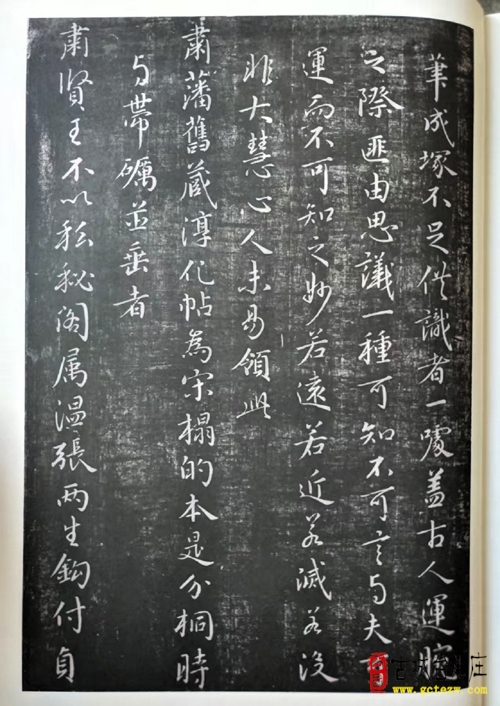 筆成塚不足供識者一噱蓋古人運腕
之際匪由思議一種可知不可言与夫可
運而不可知之妙若遠若近若滅若没
非大慧心人未易領此
肅藩舊藏淳化帖為宋榻的本是分桐時
与帶礪並垂者
肅賢王不以私秘閣属温張两生鈎付貞
www.gctezw.com